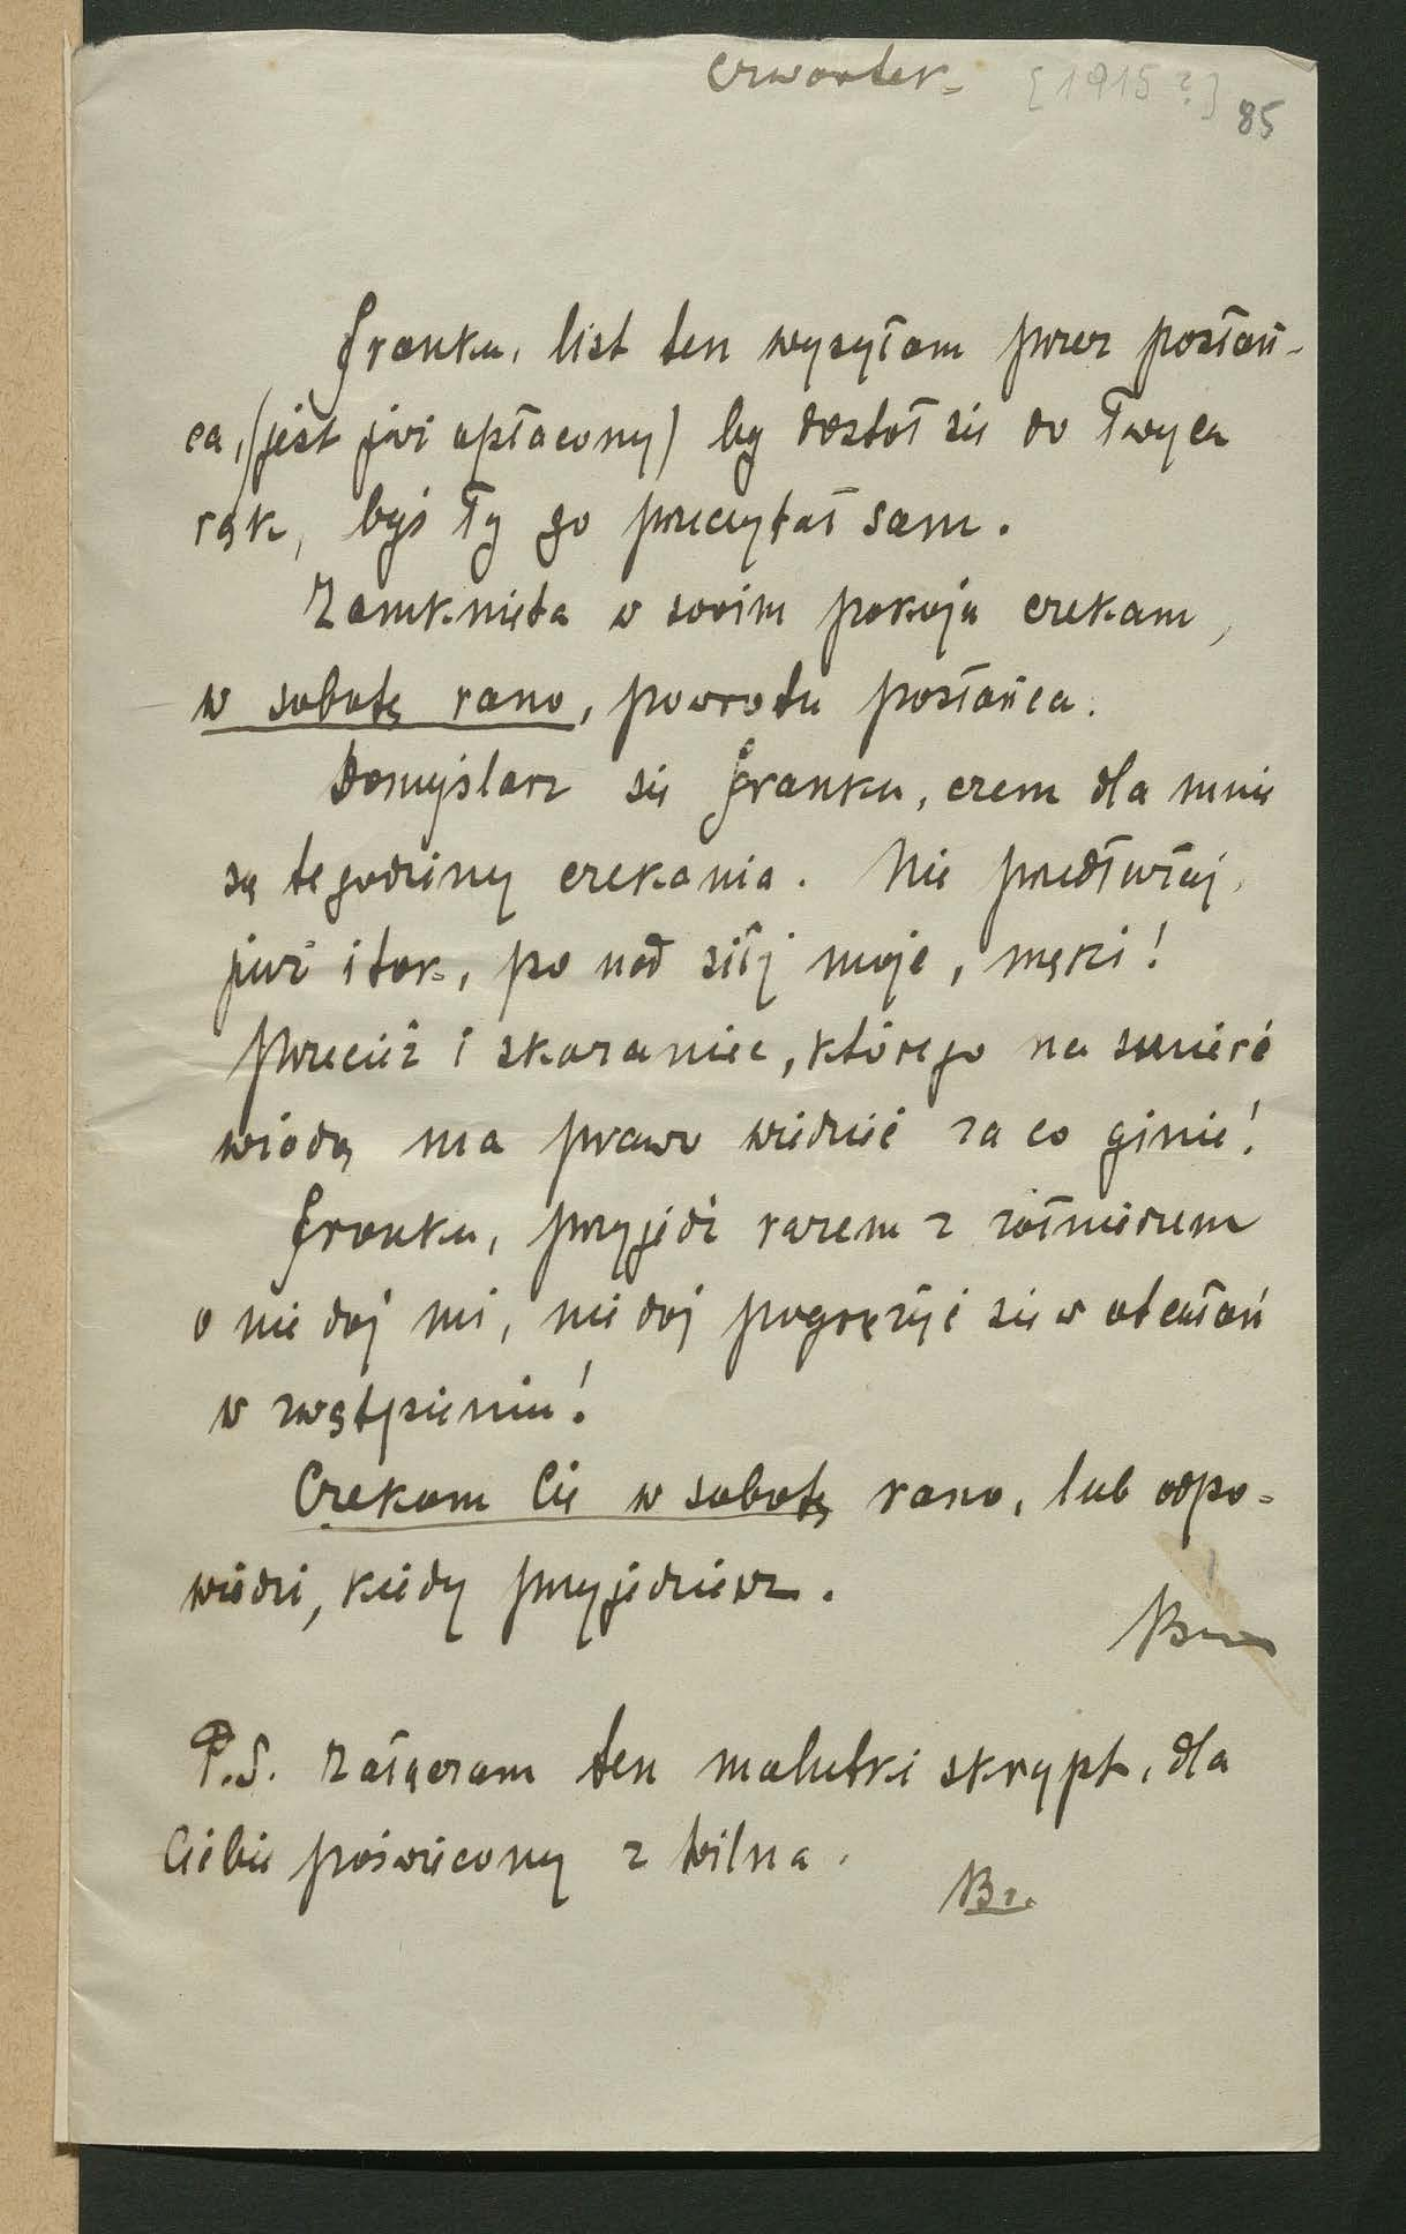 Czwartek. [1915?] 85
Franku, list ten wysyłam przez posłań-
ca, (jest już opłacony) by dostał się do Twych
rąk, byś Ty go przeczytał sam.
Zamknięta w swoim pokoju czekam,
w sobotę rano, powrotu posłańca.
Domyślasz się Franku, czem dla mnie
są te godziny czekania. Nie przedłużaj,
już i tak, po nad siły moje, męki!
Przecież i skazaniec, którego na śmierć
wiodą ma prawo wiedzieć za co ginie!
Franku, przyjedź razem z żołnierzem
o nie daj mi, nie daj pogrążyć się w otchłań
w zwątpieniu!
Czekam Cię w sobotę rano, lub odpo-
wiedzi, kiedy przyjedziesz.
P.S. Załączam ten malutki skrypt, dla
Ciebie poświęcony z Wilna.
Br.